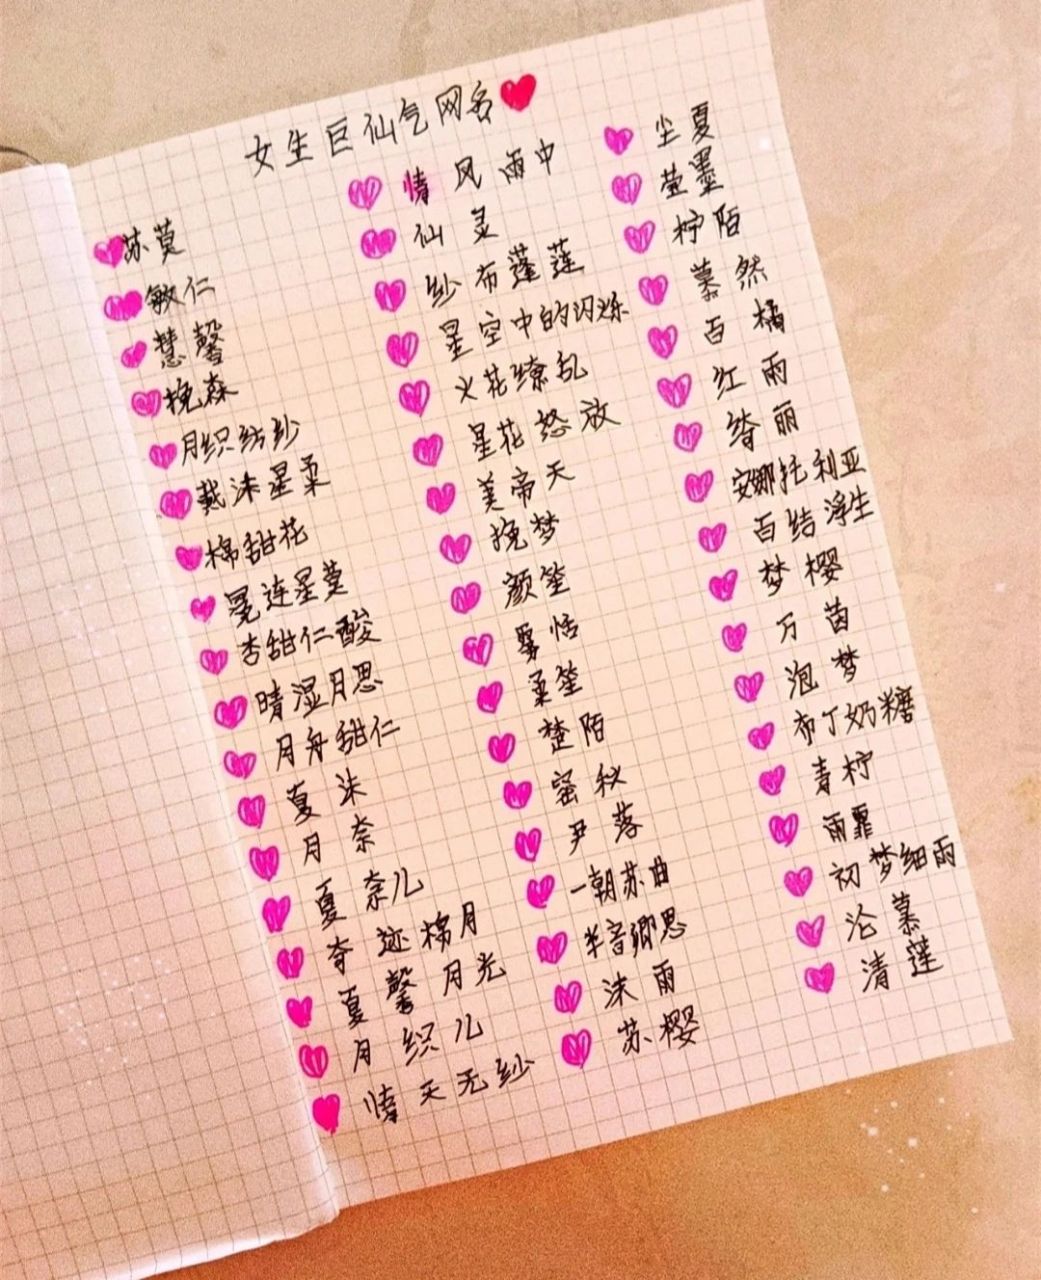 女生巨仙气网名
苏莫
敏仁
慧馨
挽森
月织纺纱
戴沫星柔
棉甜花
冕连星莫
杏甜仁酸
晴湿月思
月舟甜仁
夏沫
月奈
夏奈儿
夸迹棉月
夏馨月光
月织儿
情天无纱
情风雨中
仙灵
纱布蓬莲
星空中的闪烁
火花缭乱
星花怒放
美帝天
挽梦
颜笙
雾恬
柔笙
楚陌
蜜秘
尹落
一朝苏曲
半音卿思
沫雨
苏樱
尘夏
萤墨
柠陌
慕然
百橘
红雨
绮丽
安娜托利亚
百结浮生
梦樱
万茵
泡梦
布丁奶糖
青柠
雨霏
初梦细雨
沦慕
清莲